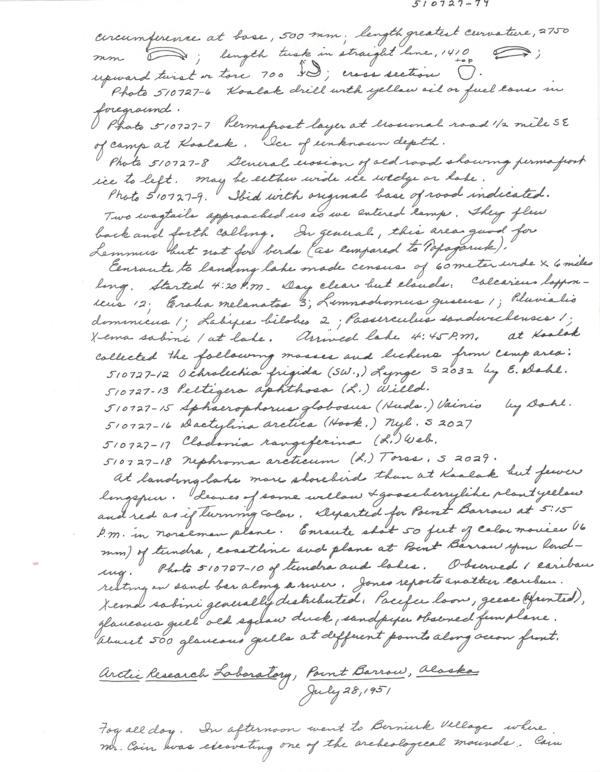 510727-79
circumference at base, 500 mm; length greatest curvature, 2750
mm ; length tusk in straight line, 1410 ;
upward twist or torc 700 ; cross section top .
Photo 510727-6 Kaolak drill with yellow oil or fuel cans in
foreground.
Photo 510727-7 Permafrost layer at erosional road 1/2 mile SE
of camp at Kaolak. Ice of unknown depth.
Photo 510727-8 General erosion of old road showing permafrost
ice to left. may be either wide ice wedge or lake.
Photo 510727-9. Ibid with original base of road indicated.
Two wagtails approached us as we entered camp. They flew
back and forth calling. In general, this area good for
Lemmus but not for birds (as compared to ).
Enroute to landing lake made census of 60 meter wide x 6 miles
long. Started 4:20 P.M. Day clear but clouds. Calcarius lappon-
icus 12; Erolia melanotos 3; Limnodromus griseus 1; Pluvialis
dominicus 1; Lobipes lobatus 2; Passerculus sandwichensis 1;
Xema sabini 1 at lake. Arrived lake 4:45 P.M. at Kaolak
collected the following mosses and lichens from camp area:
510727-12 Ochrolechia frigida (SW.,) Lynge S 2032 by E. Dahl.
510727-13 Peltigera aphthosa (L.) Willd.
510727-15 Sphaerophorus globosus (Huds.) Vainio by Dahl.
510727-16 Dactylina arctica (Hook.) Nyl. S 2027
510727-17 Cladonia rangiferina (L.) Web.
510727-18 Nephroma arcticum (L.) Torss. S 2029.
At landing lake more shorebird than at Kaolak but fewer
longspur. Leaves of some willow & gooseberrylike plant yellow
and red as if turning color. Departed for Point Barrow at 5:15
P.M. in norseman plane. Enroute shot 50 feet of color movies (16
mm) of tundra, coastline and plane at Point Barrow upon land-
ing. Photo 510727-10 of tundra and lakes. Observed 1 caribou
resting on sand bar along a river. Jones reports another caribou.
Xema sabini generally distributed. Pacific loon, geese (W fronted),
glaucous gull old squaw duck, sandpiper observed from plane.
About 500 glaucous gulls at different points along ocean front.
Arctic Research Laboratory, Point Barrow, Alaska
July 28, 1951
Fog all day. In afternoon went to Birnirk Village where
Mr. Cain was excavating one of the archeological mounds. Cain